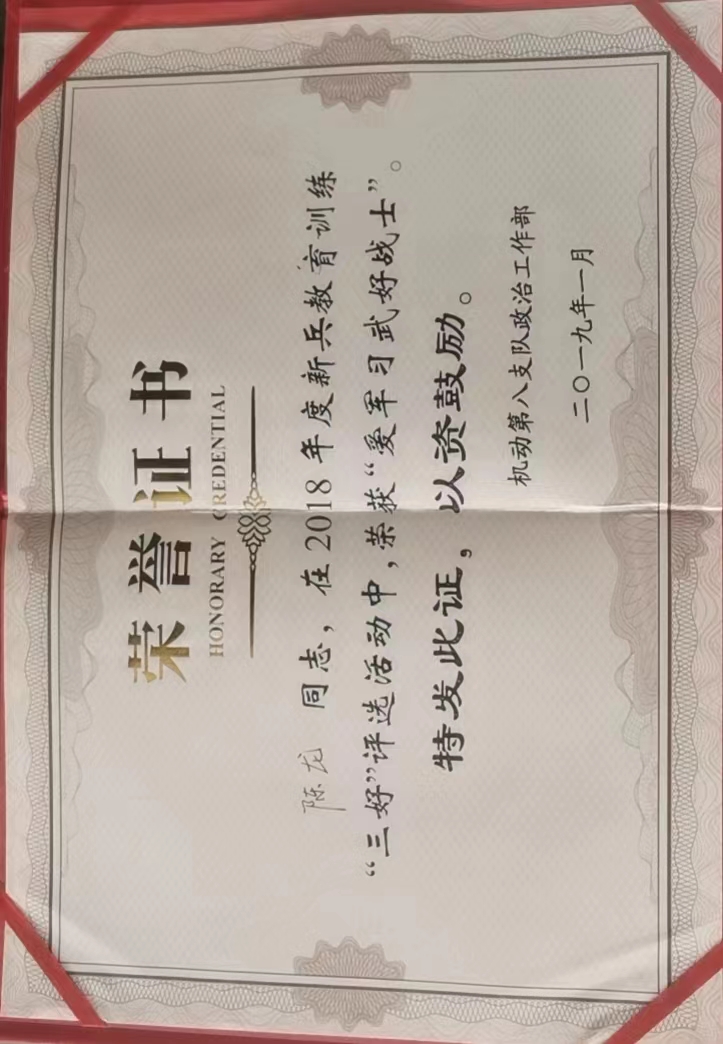 荣誉证书
HONORARY CREDENTIAL
陈龙 同志，在2018年度新兵教育训练
“三好”评选活动中，荣获“爱军习武好战士”。
特发此证，以资鼓励。
机动第八支队政治工作部
二〇一九年一月